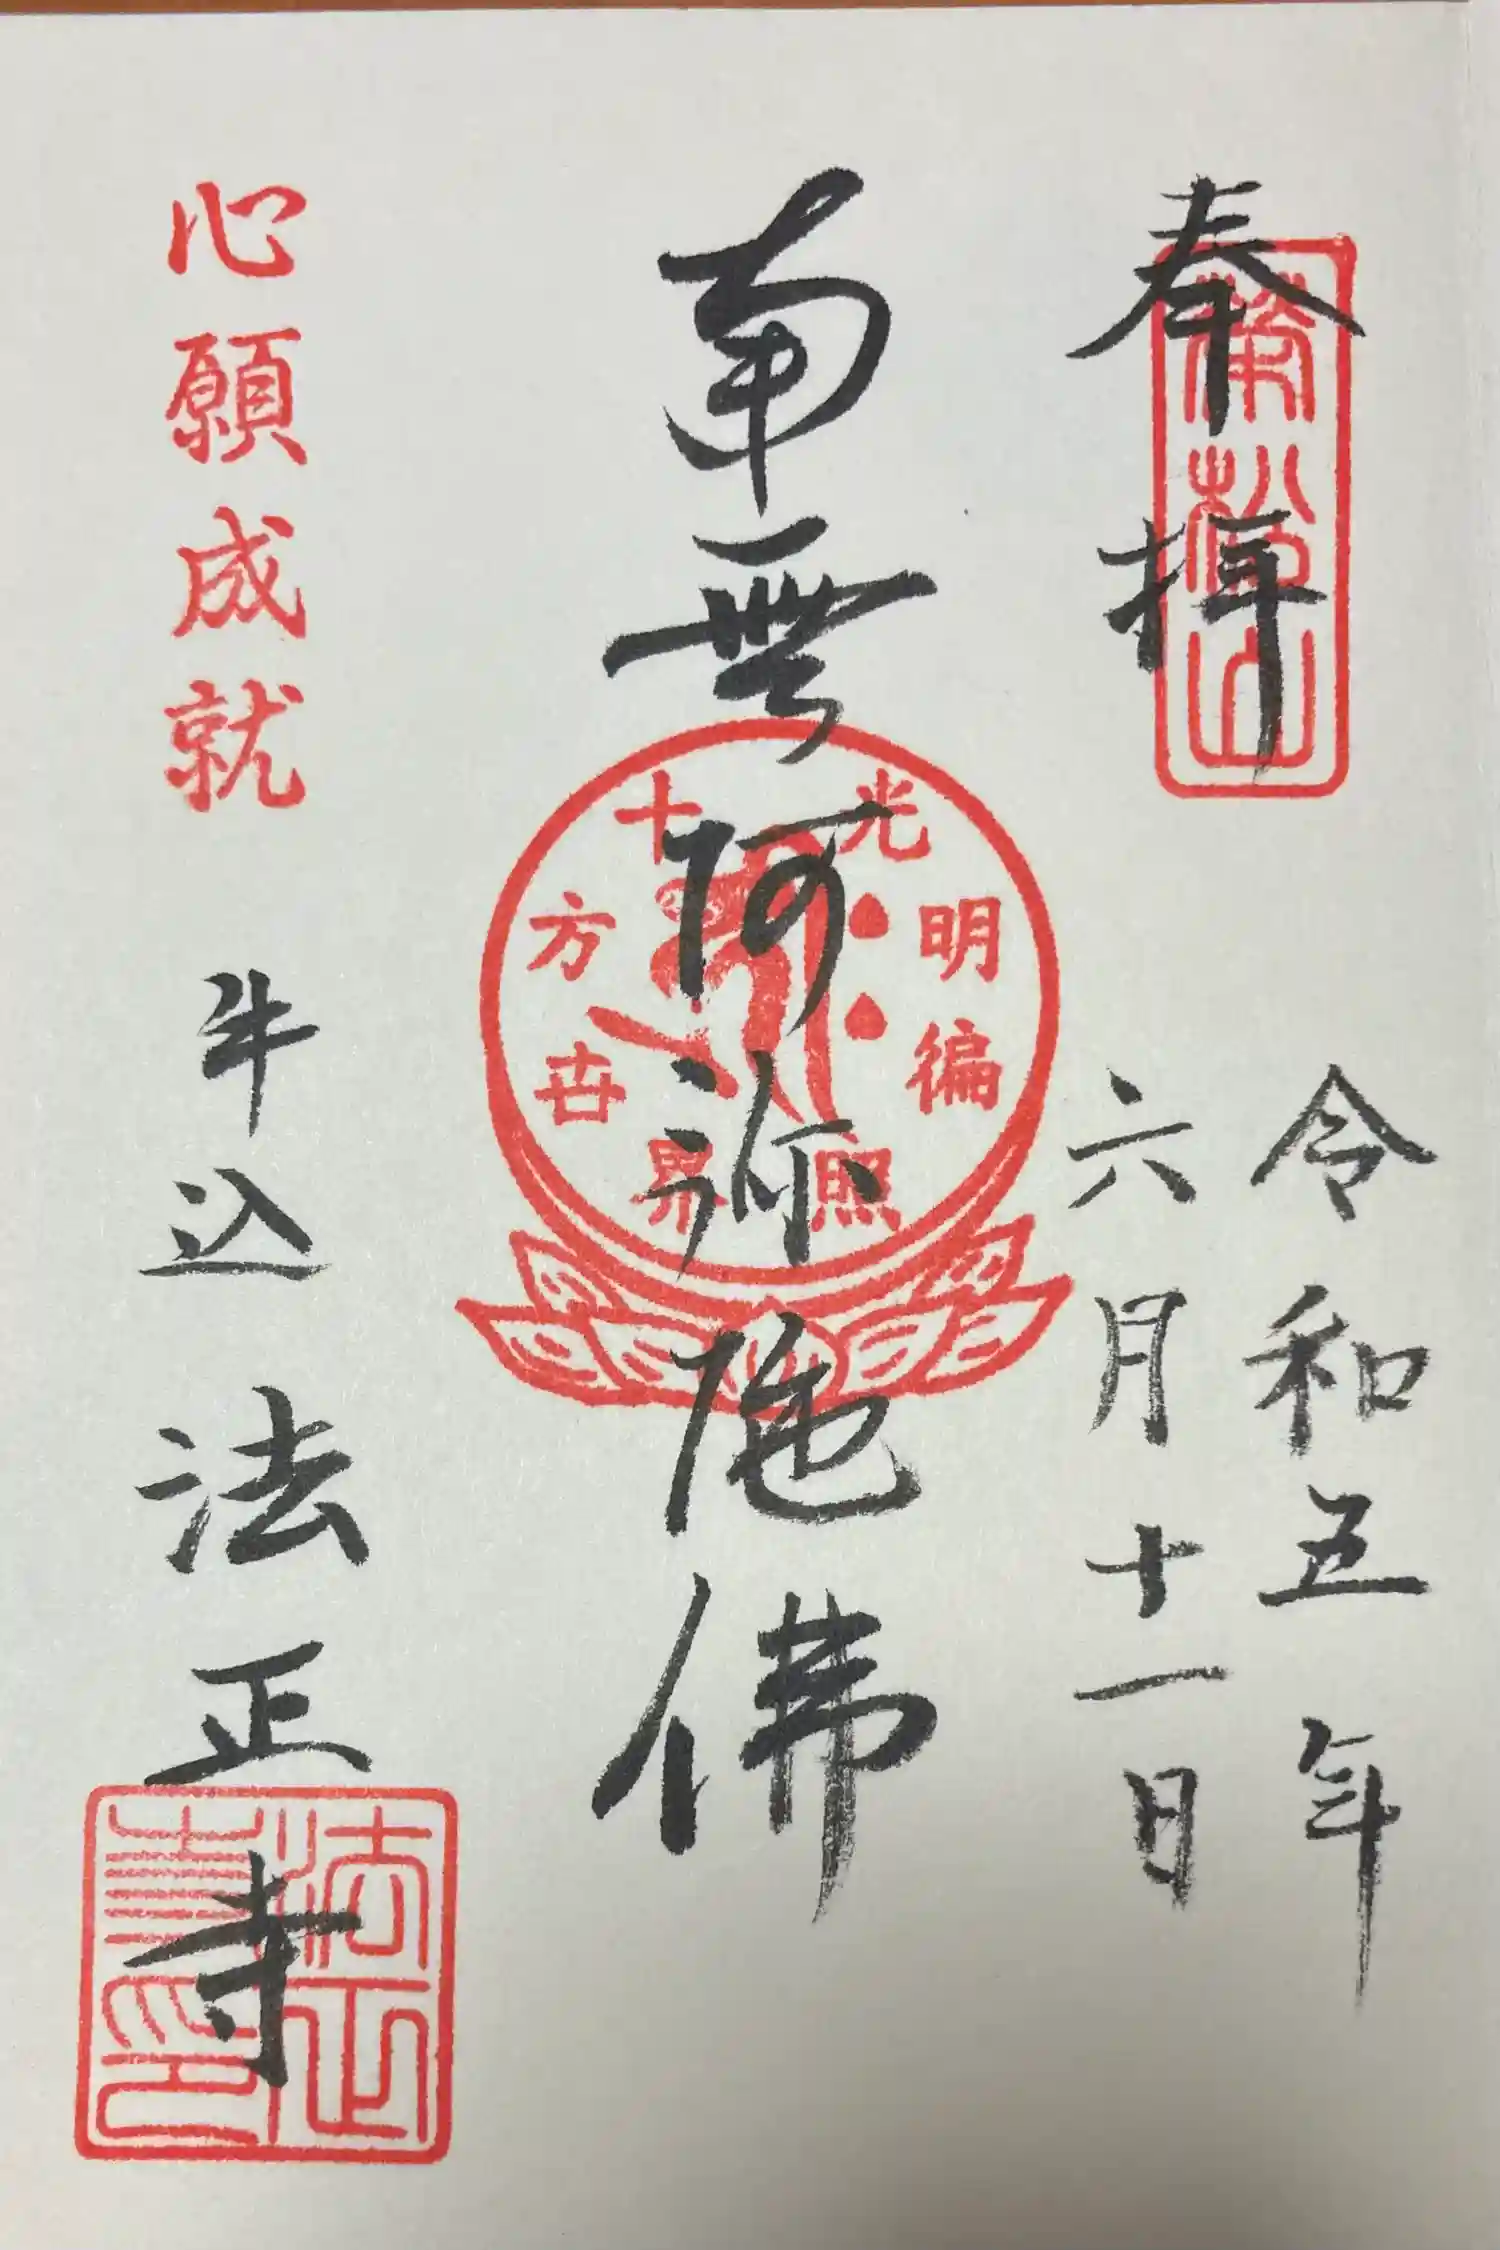 奉拝
令和五年
六月十一日
南無阿弥陀佛
光明徧照
十方世界
心願成就
牛込
法正寺